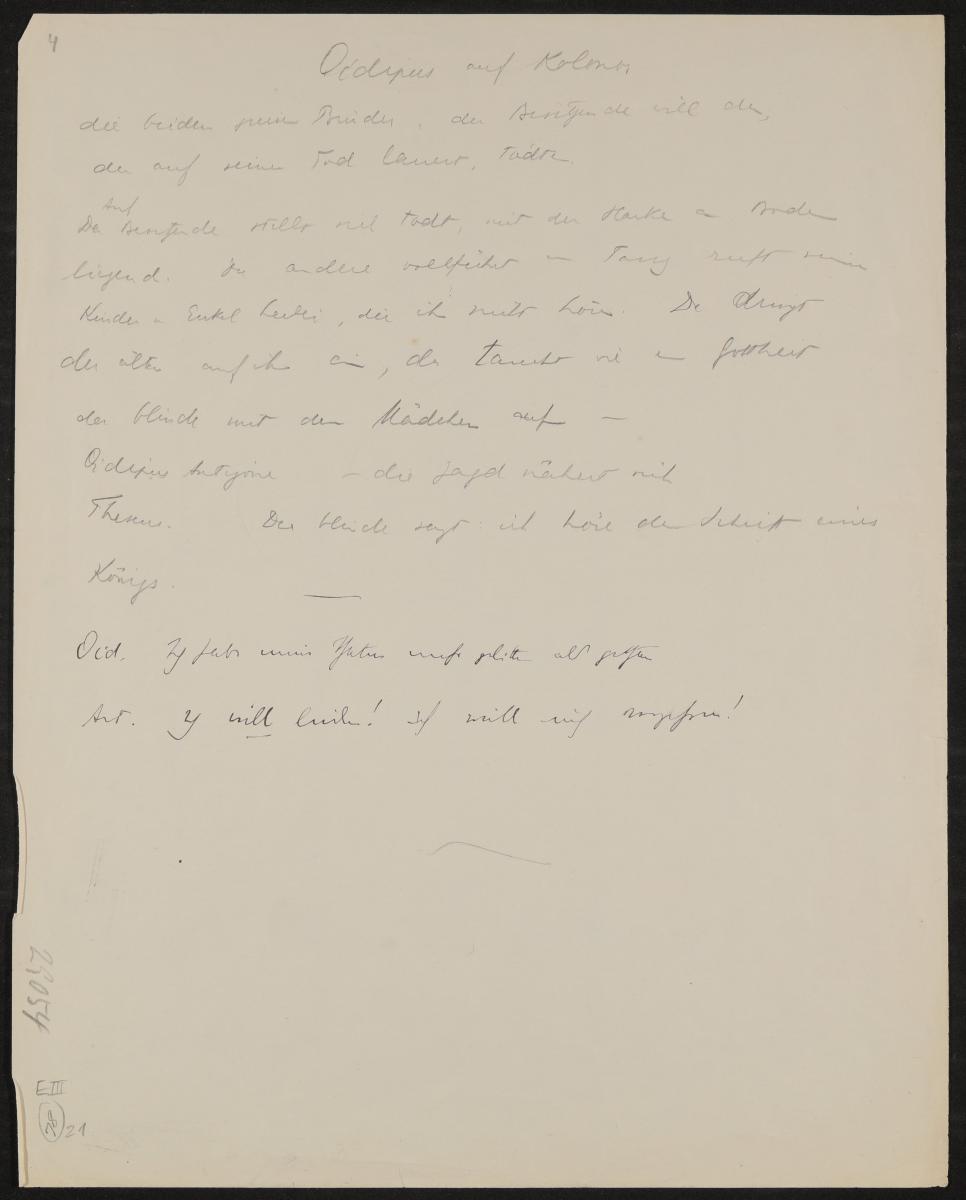 4
Oidipus auf Kolonos
die beiden Brüder. der Besitzende will den,
der auf seinen Tod lauert, tödten.
Auf
Der Besitzende stellt sich todt, mit der Hacke am Boden
liegend. Der andere vollführt einen Tanz ruft seine
Kinder u Enkel herbei, die ihn nicht hören. Da dringt
der alte auf ihn ein, da taucht wie eine Gottheit
der blinde mit dem Mädchen auf —
Oidipus Antigone — die Jagd nähert sich
Theseus. Der blinde sagt: ich höre den Schritt eines
Königs.
Oid. Ich habe meine Thaten mehr gelitten als gethan
Ant. Ich will leiden! ich will mich
29054
E III
78
21